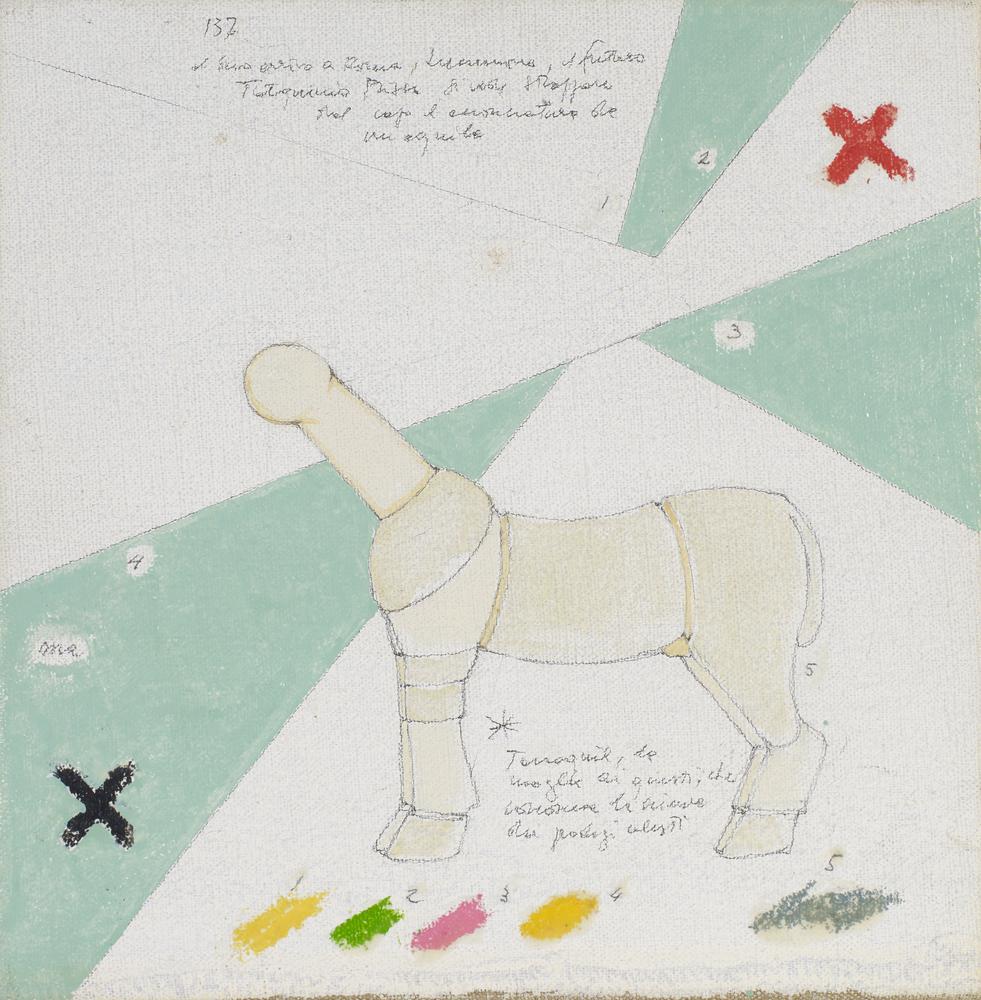 137
il suo arrivo a Roma, Lucumone, il futuro
Tarquinio si vide
dal capo
un aquila
2
1
3
4
ma
5
Tanaquil, la
moglie di questi, che
conosceva la scienza
dei prodigi celesti
5
1 2 3 4